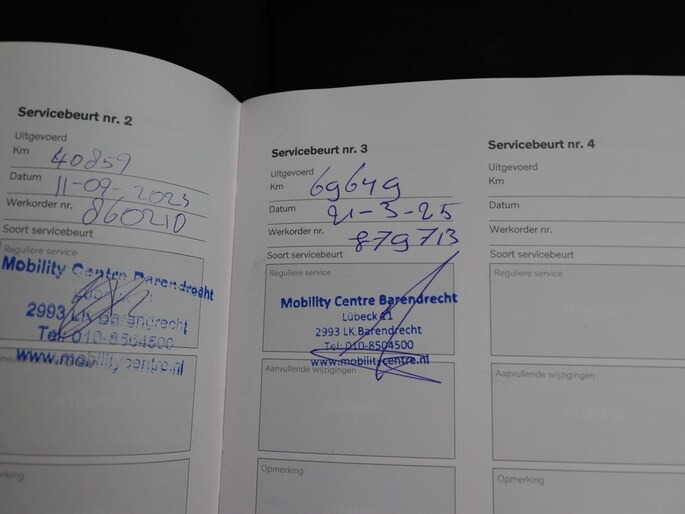 Servicebeurt nr. 2
Uitgevoerd
Km 40859
Datum 11-09-2023
Werkorder nr. 860210
Soort servicebeurt
Reguliere service
Mobility Centre Barendrecht
2993 LK Barendrecht
Tel: 010-8504500
www.mobilitycentre.nl
Servicebeurt nr. 3
Uitgevoerd
Km 69649
Datum 21-3-25
Werkorder nr. 879713
Soort servicebeurt
Reguliere service
Mobility Centre Barendrecht
Lübeck 11
2993 LK Barendrecht
Tel: 010-8504500
www.mobilitycentre.nl
Aanvullende wijzigingen
Opmerking
Servicebeurt nr. 4
Uitgevoerd
Km
Datum
Werkorder nr.
Soort servicebeurt
Reguliere service
Aanvullende wijzigingen
Opmerking